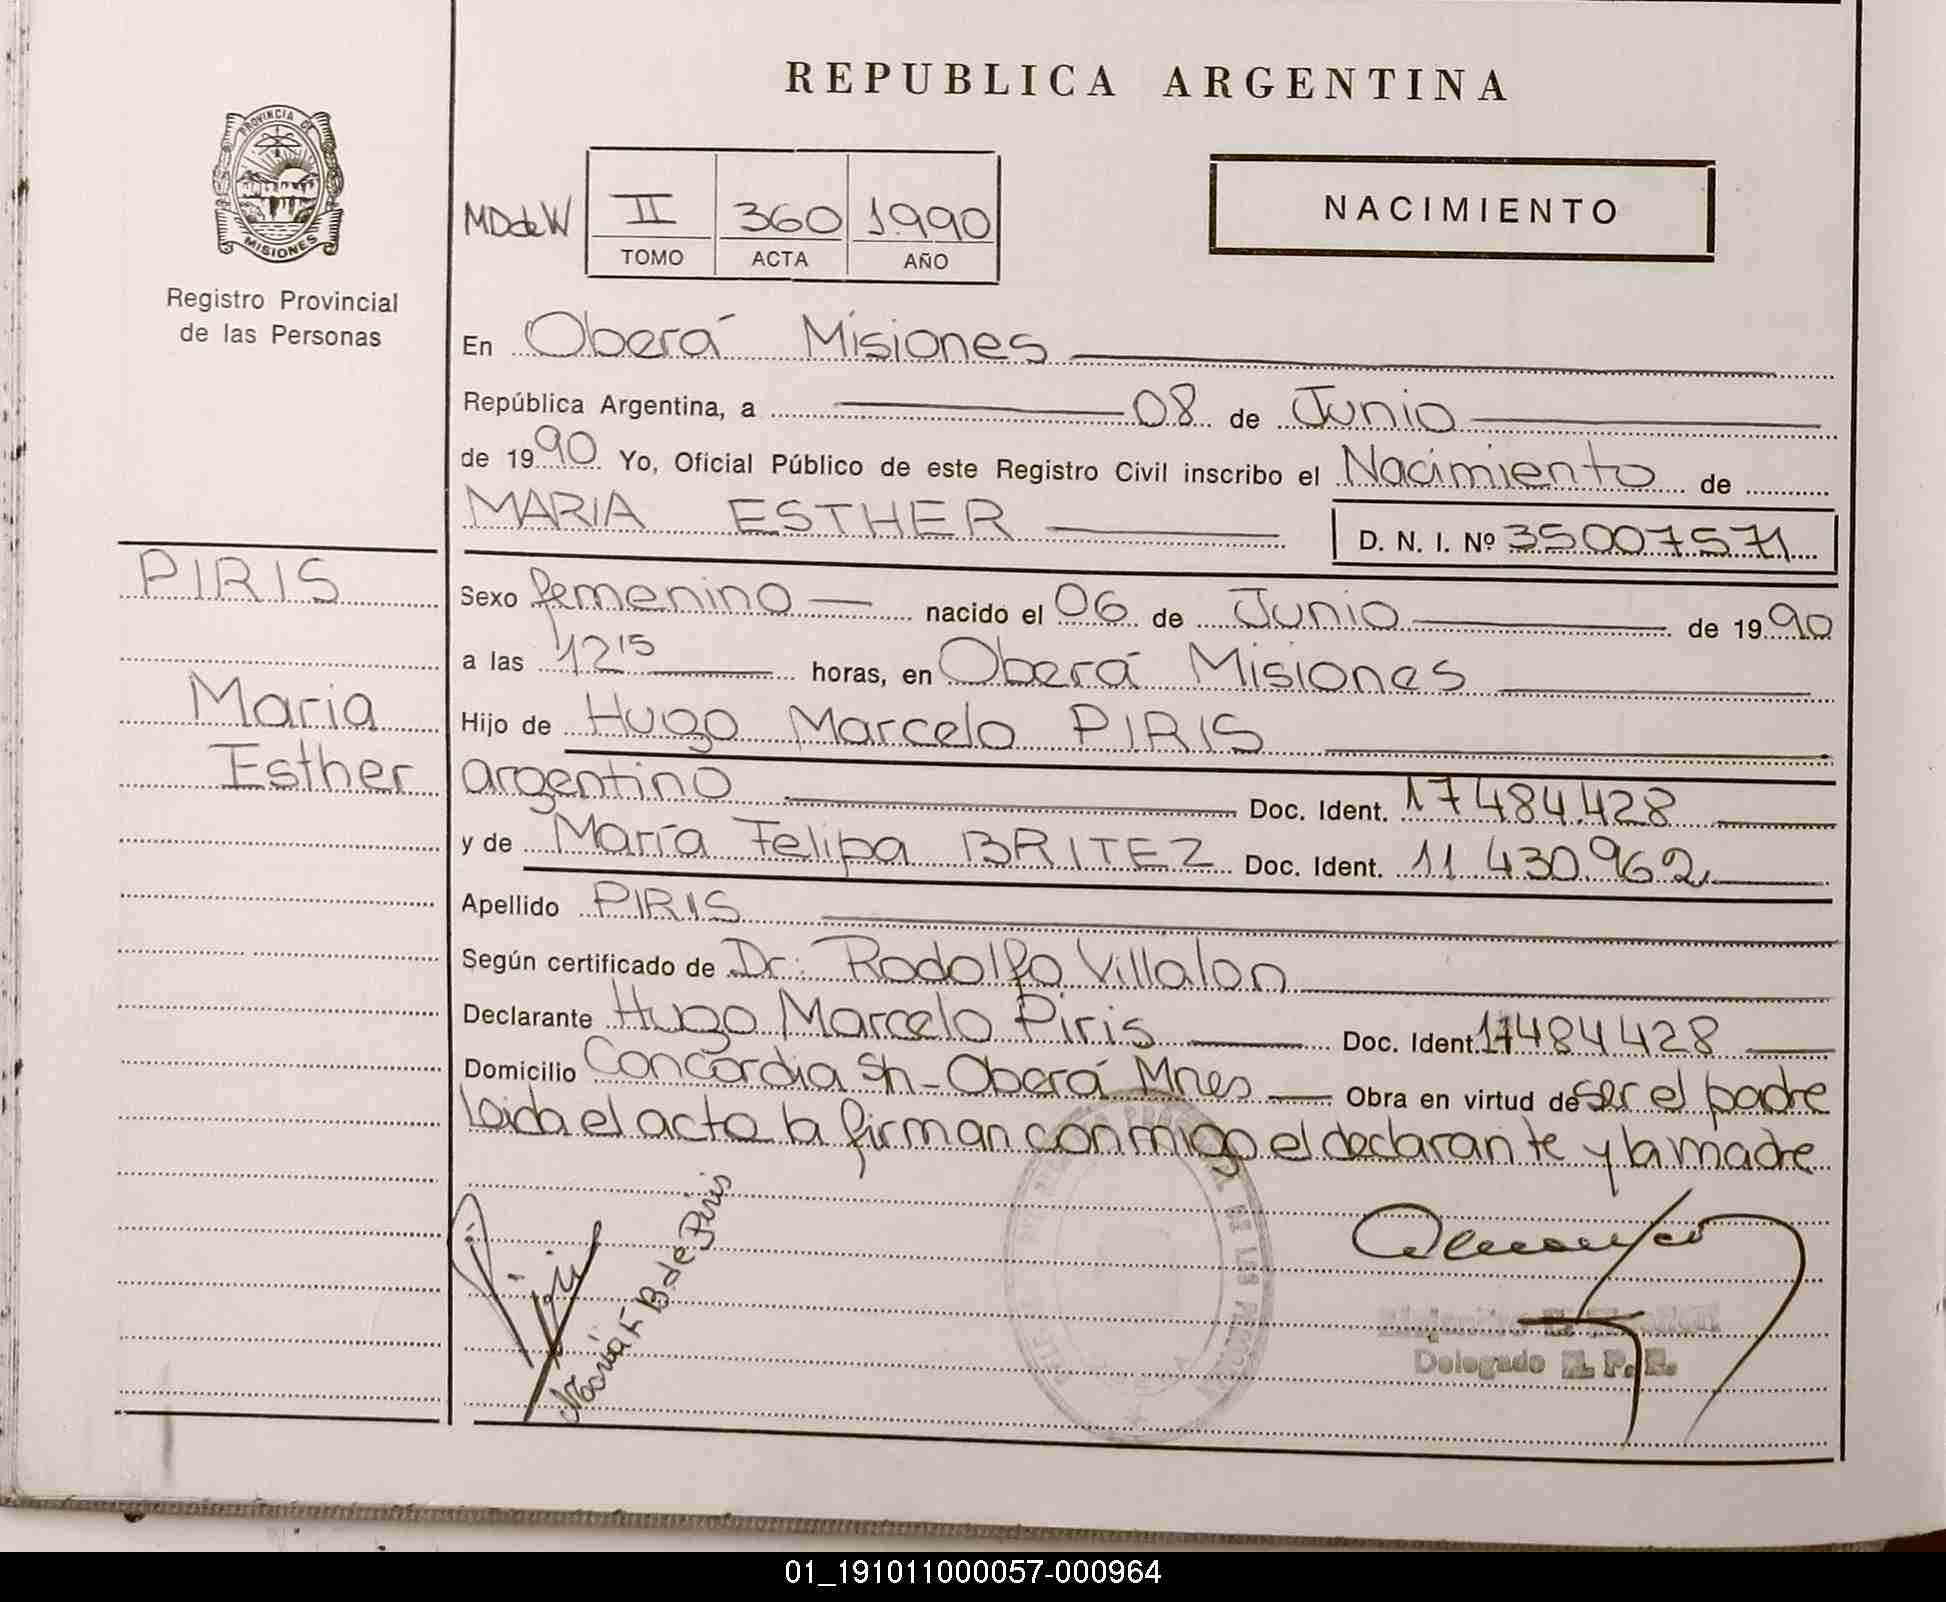 REPUBLICA ARGENTINA
PROVINCIA DE
MISIONES
Registro Provincial
de las Personas
NACIMIENTO
MDdeW II 360 1990
TOMO ACTA AÑO
En Oberá Misiones
República Argentina, a 08 de Junio
de 1990 Yo, Oficial Público de este Registro Civil inscribo el Nacimiento de
MARIA ESTHER D. N. I. Nº 35007571
PIRIS
Maria
Esther
Sexo femenino nacido el 06 de Junio de 1990
a las 12 15 horas, en Oberá Misiones
Hijo de Hugo Marcelo PIRIS
argentino Doc. Ident. 17484.428
y de María Felipa BRITEZ Doc. Ident. 11 430.962
Apellido PIRIS
Según certificado de Dr: Rodolfo Villalon
Declarante Hugo Marcelo Piris Doc. Ident. 17484428
Domicilio Concordia Sn - Oberá Mnes Obra en virtud de ser el padre
Leida el acto la firman conmigo el declarante y la madre
Piris
María F B de Piris
DE LAS
Delegado R. P. P.
01_191011000057-000964